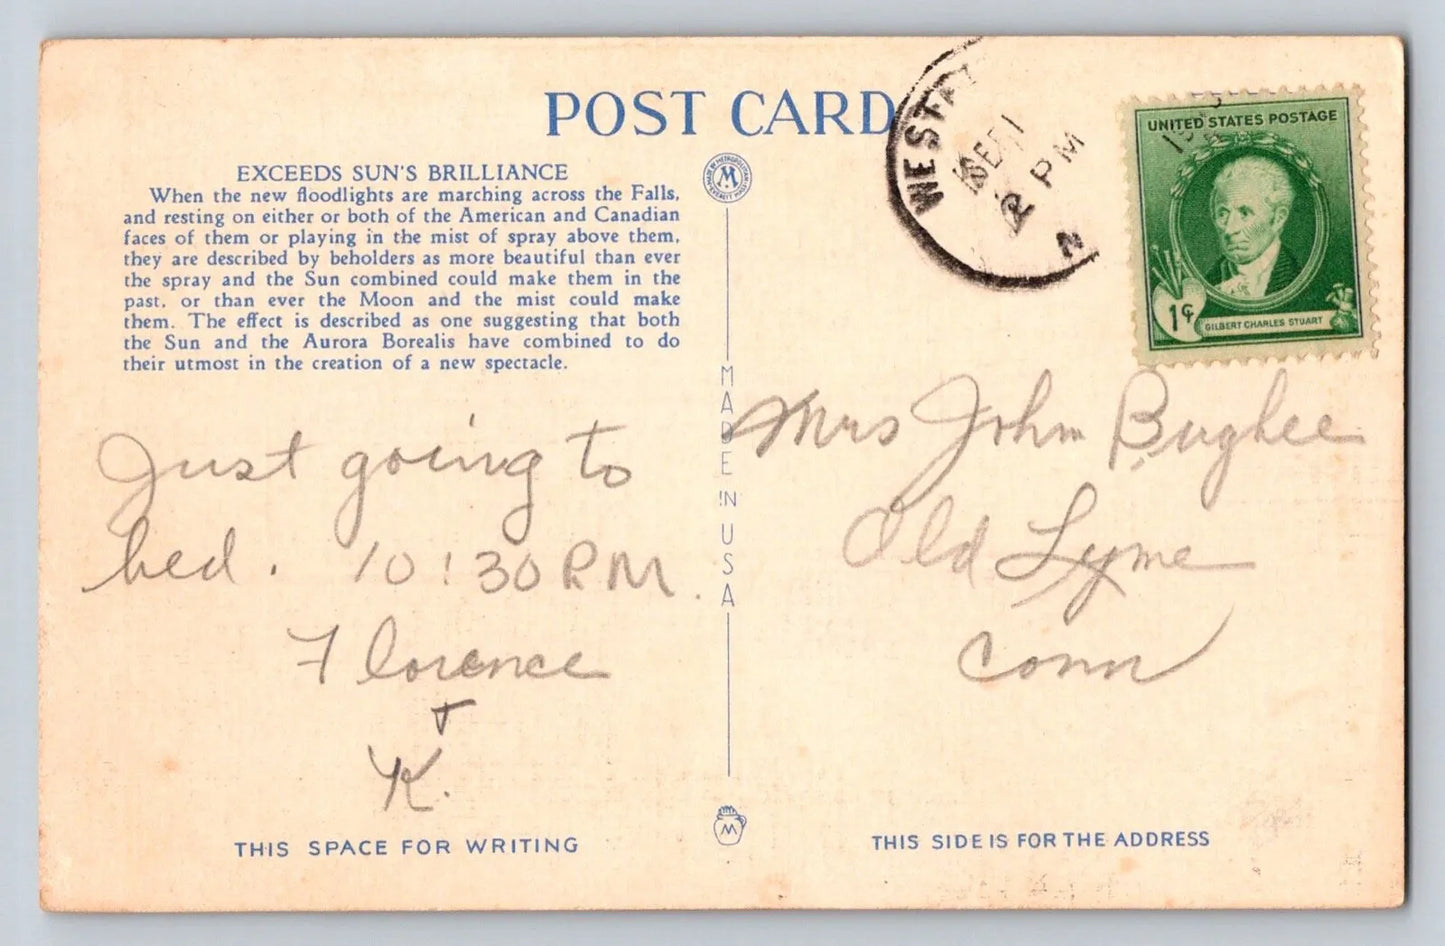 POST CARD
EXCEEDS SUN'S BRILLIANCE
When the new floodlights are marching across the Falls,
and resting on either or both of the American and Canadian
faces of them or playing in the mist of spray above them,
they are described by beholders as more beautiful than ever
the spray and the Sun combined could make them in the
past, or than ever the Moon and the mist could make
them. The effect is described as one suggesting that both
the Sun and the Aurora Borealis have combined to do
their utmost in the creation of a new spectacle.
Just going to
bed. 10:30 PM.
Florence
+
K.
THIS SPACE FOR WRITING
MADE BY METROPOLITAN
EVERETT MASS
M
MADE IN USA
W
PM
N
UNITED STATES POSTAGE
1¢
GILBERT CHARLES STUART
Mrs John Bugbee
Old Lyme
Conn
THIS SIDE IS FOR THE ADDRESS